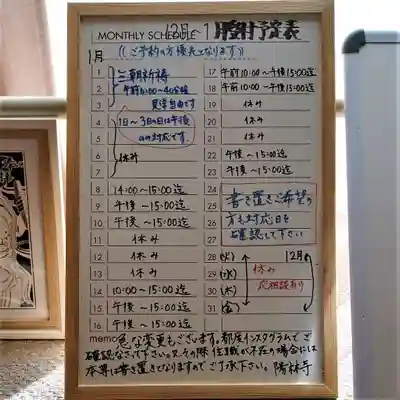 MONTHLY SCHEDULE 12月-1月 予定表
1月 (ご予約の方優先となります)
1 三朝祈祷
2 午前10:00〜40分程
3 見学自由です
4 1日〜3日は午後
5 のみ対応です。
6 休み
7
8 14:00〜15:00迄
9 午後〜15:00迄
10 午後〜15:00迄
11 休み
12 休み
13 休み
14 10:00〜15:00迄
15 午後〜15:00迄
16 午後〜15:00迄
17 午前10:00〜午後15:00迄
18 午前10:00〜午後15:00迄
19 休み
20 休み
21 休み
22 午後〜15:00迄
23 午後〜15:00迄
24 書き置きご希望の
25 方も対応日を
26 確認して下さい
27
28 (火) 12月
29 (水) 休み
30 (木) 応相談有り
31 (金)
memo 急な変更もございます。都度インスタグラムでご
確認なさって下さい。又その際住職が不在の場合には
本尊は書き置きとなりますのでご了承下さい。陽林寺